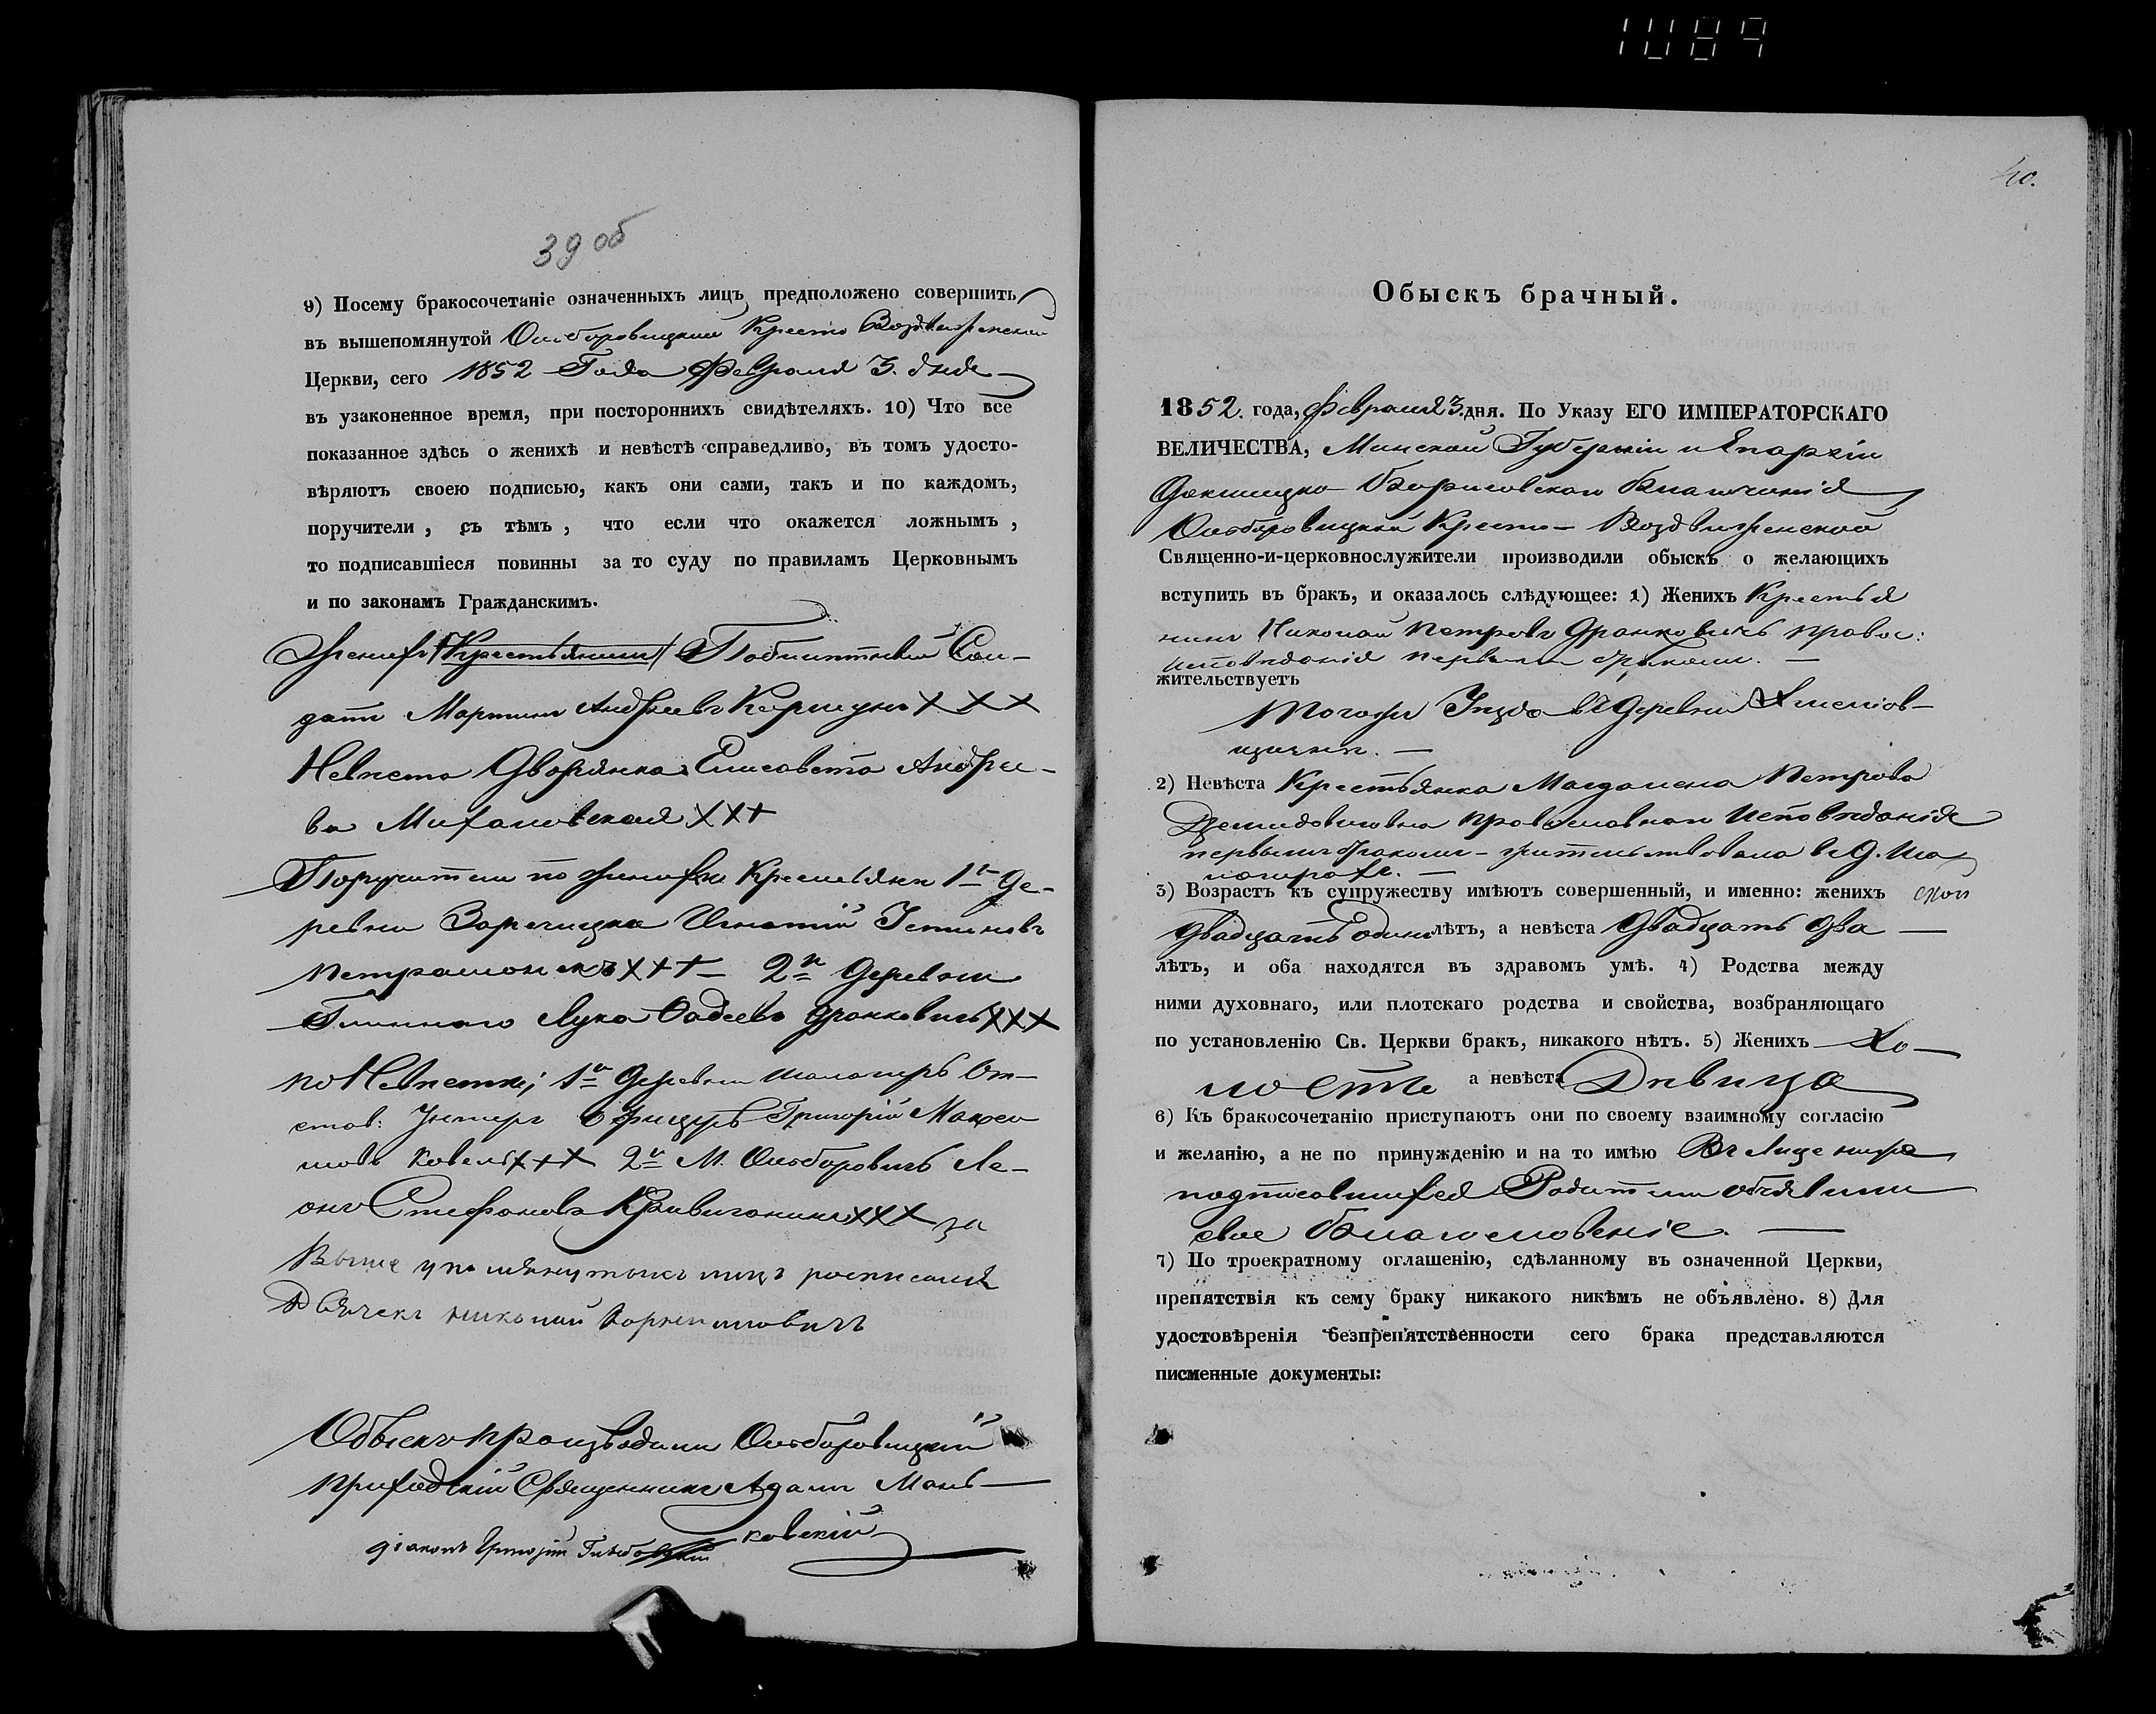 1089
39 об
9) Посему бракосочетаніе означенныхъ лицъ предположено совершить
въ вышепомянутой Ольборовицкой Кресто Воздвиженской
Церкви, сего 1852 Года Февраля 3. дня
въ узаконенное время, при постороннихъ свидѣтеляхъ. 10) Что все
показанное здѣсь о женихѣ и невѣстѣ справедливо, въ томъ удосто-
вѣряютъ своею подписью, какъ они сами, такъ и по каждомъ,
поручители, съ тѣмъ, что если что окажется ложнымъ,
то подписавшіеся повинны за то суду по правиламъ Церковнымъ
и по законамъ Гражданскимъ.
Женихъ Крестьянинъ Побилетный Сол-
датъ Мартинъ Андреевъ ХХХ
Невѣста Дворянка Елисавета Андрее-
ва Михаловская ХХХ
Поручители по женихѣ Крестьяни 1й де-
ревни Заречицка Игнатій Устиновъ
ХХХ 2й деревни
Глинного Лука Фадеевъ Дранковичь ХХХ
по Невѣстѣ; 1й деревни От-
став: Унтеръ Офицеръ Григорій
Ковель ХХХ 2й М. Ольборовичь Ле-
онъ Стефановъ ХХХ за
Выше упомянутыхъ лицъ росписался
Дьячекъ Николай
Обыскъ производили Ольборовицкій
приходскій Священникъ Адамъ Мань-
ковскій
діаконъ Григорій
40.
Обыскъ брачный.
1852. года, Февраля 3. дня. По Указу ЕГО ИМПЕРАТОРСКАГО
ВЕЛИЧЕСТВА, Минской Губерніи и Епархіи
Докшицко Борисовскаго Благочинія
Ольборовицкой Кресто-Воздвиженской
Священно-и-церковнослужители производили обыскъ о желающихъ
вступить въ бракъ, и оказалось слѣдующее: 1) Женихъ Крестья
нинъ Николай Петровъ Дранковичь правос:
исповѣданія первымъ бракомъ. —
жительствуетъ
Тогожъ Уѣзда въ деревни
2) Невѣста Крестьянка Магдалена Петрова
Демидовичовна православнаго исповѣданія
первымъ бракомъ - жительствовала въ д.
3) Возрастъ къ супружеству имѣютъ совершенный, и именно: женихъ
двадцать одинъ лѣтъ, а невѣста двадцать два —
лѣтъ, и оба находятся въ здравомъ умѣ. 4) Родства между
ними духовнаго, или плотскаго родства и свойства, возбраняющаго
по установленію Св. Церкви бракъ, никакого нѣтъ. 5) Женихъ Хо-
лостъ а невѣста Дѣвица
6) Къ бракосочетанію приступаютъ они по своему взаимному согласію
и желанію, а не по принужденію и на то имѣю Въ лице ниже
подписавшихся Родители объявили
свое благословеніе. —
7) По троекратному оглашенію, сдѣланному въ означенной Церкви,
препятствія къ сему браку никакого никѣмъ не объявлено. 8) Для
удостовѣренія безпрепятственности сего брака представляются
писменные документы: